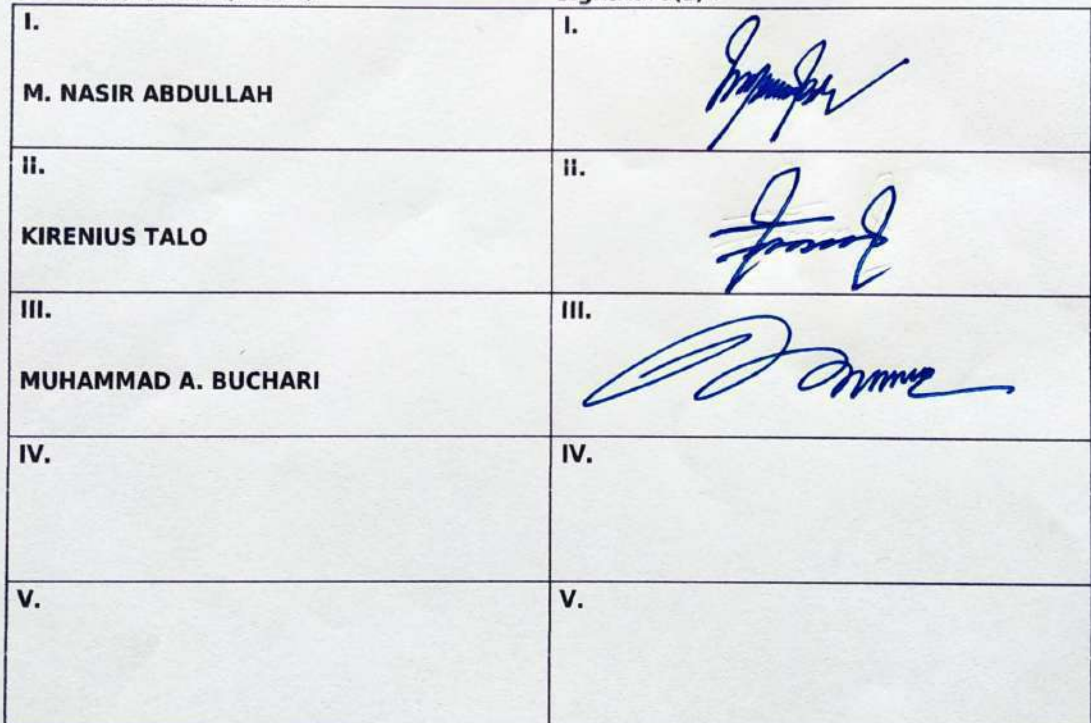 I.
I.
M. NASIR ABDULLAH
II.
II.
KIRENIUS TALO
III.
III.
MUHAMMAD A. BUCHARI
IV.
IV.
V.
V.